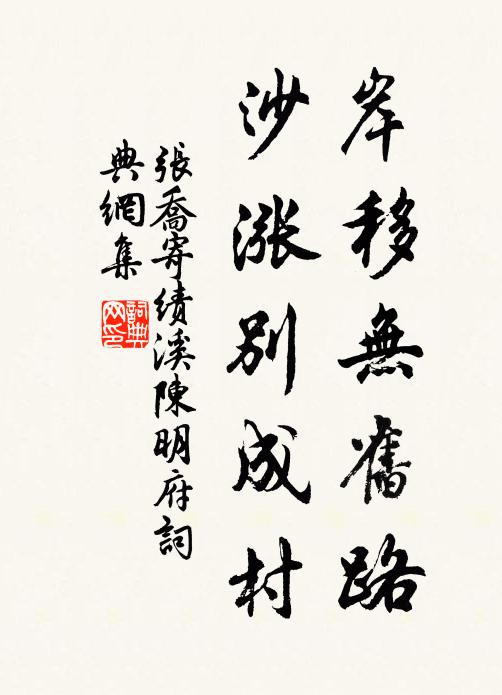 岸移無舊路
沙漲別成村
張喬寄績溪陳明府詞
典網集
詞典
网印